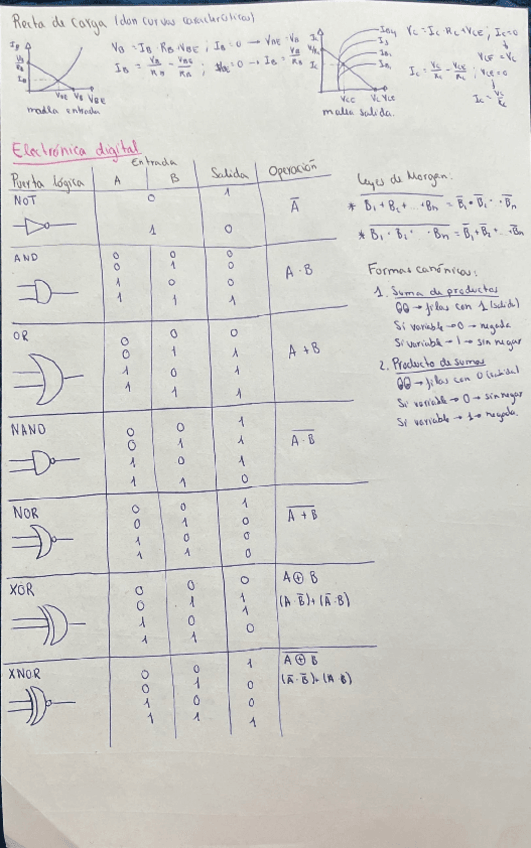 Recta de carga (don curvas características)
I_B V_B/R_B I_B V_BE V_B V_BE
malla entrada
V_B = I_B · R_B + V_BE ; I_B = 0 → V_BE = V_B
I_B = V_B/R_B - V_BE/R_B ; V_BE = 0 → I_B = V_B/R_B
I_C V_CE V_C V_CE
malla salida.
V_C = I_C · R_C + V_CE ; I_C = 0
↓
V_CE = V_C
I_C = V_C/R_C - V_CE/R_C ; V_CE = 0
↓
I_C = V_C/R_C
Electrónica digital
Entrada
Puerta lógica A B Salida Operación
NOT
0 1
1 0
A̅
AND
0 0 0
0 1 0
1 0 0
1 1 1
A · B
OR
0 0 0
0 1 1
1 0 1
1 1 1
A + B
NAND
0 0 1
0 1 1
1 0 1
1 1 0
\overline{A · B}
NOR
0 0 1
0 1 0
1 0 0
1 1 0
\overline{A + B}
XOR
0 0 0
0 1 1
1 0 1
1 1 0
A ⊕ B
(A · B̅) + (A̅ · B)
XNOR
0 0 1
0 1 0
1 0 0
1 1 1
\overline{A ⊕ B}
(A̅ · B̅) + (A · B)
Leyes de Morgan:
* \overline{B₁ + B₂ + ... Bn} = B̅₁ · B̅₁ · · B̅n
* \overline{B₁ · B₂ · · Bn} = B̅₁ + B̅₂ + .. B̅n
Formas canónicas:
1. Suma de productos
→ filas con 1 (salida)
Si variable → 0 → negada
Si variable → 1 → sin negar
2. Producto de sumas
→ filas con 0 (salida)
Si variable → 0 → sin negar
Si variable → 1 → negada.